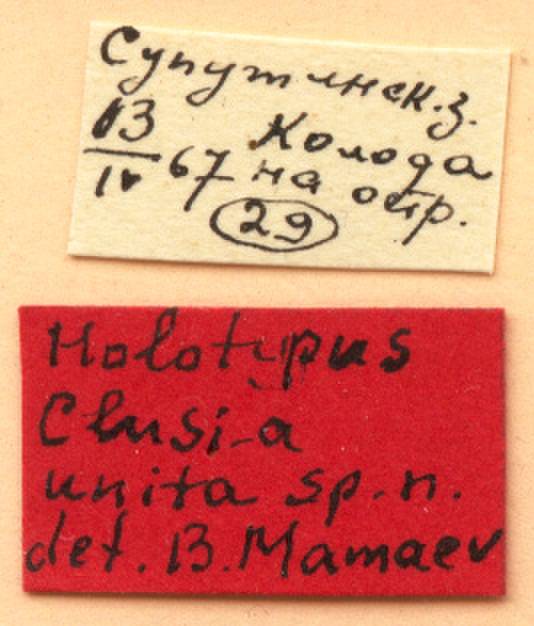 Супутинск.з.
13 Колода
IV 67 на остр.
29
Holotypus
Clusia
unita sp.n.
det. B.Mamaev